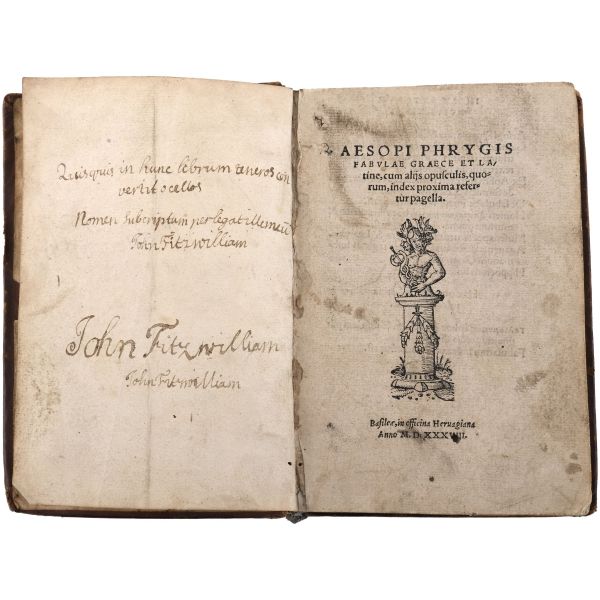 Quisquis in hunc lebrum teneros con
vertit ocellos
Nomen subcriptum perlegat ille meū
John Fitzwilliam
John Fitzwilliam
John Fitzwilliam
AESOPI PHRYGIS
FABVLAE GRAECE ET LA-
tine, cum alijs opusculis, quo-
rum, index proxima refer-
tur pagella.
Basileæ, in officina Heruagiana
Anno M. D. XXXVIII.